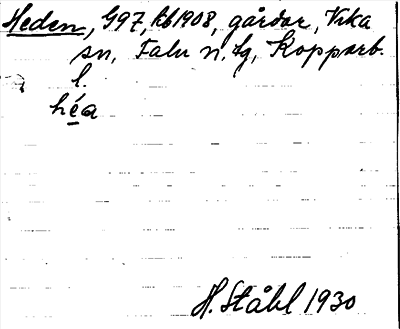 Heden, G97, Rb1908, gårdar, Vika
sn, Falu n. tg, Kopparb.
l.
héa
H. Ståhl 1930